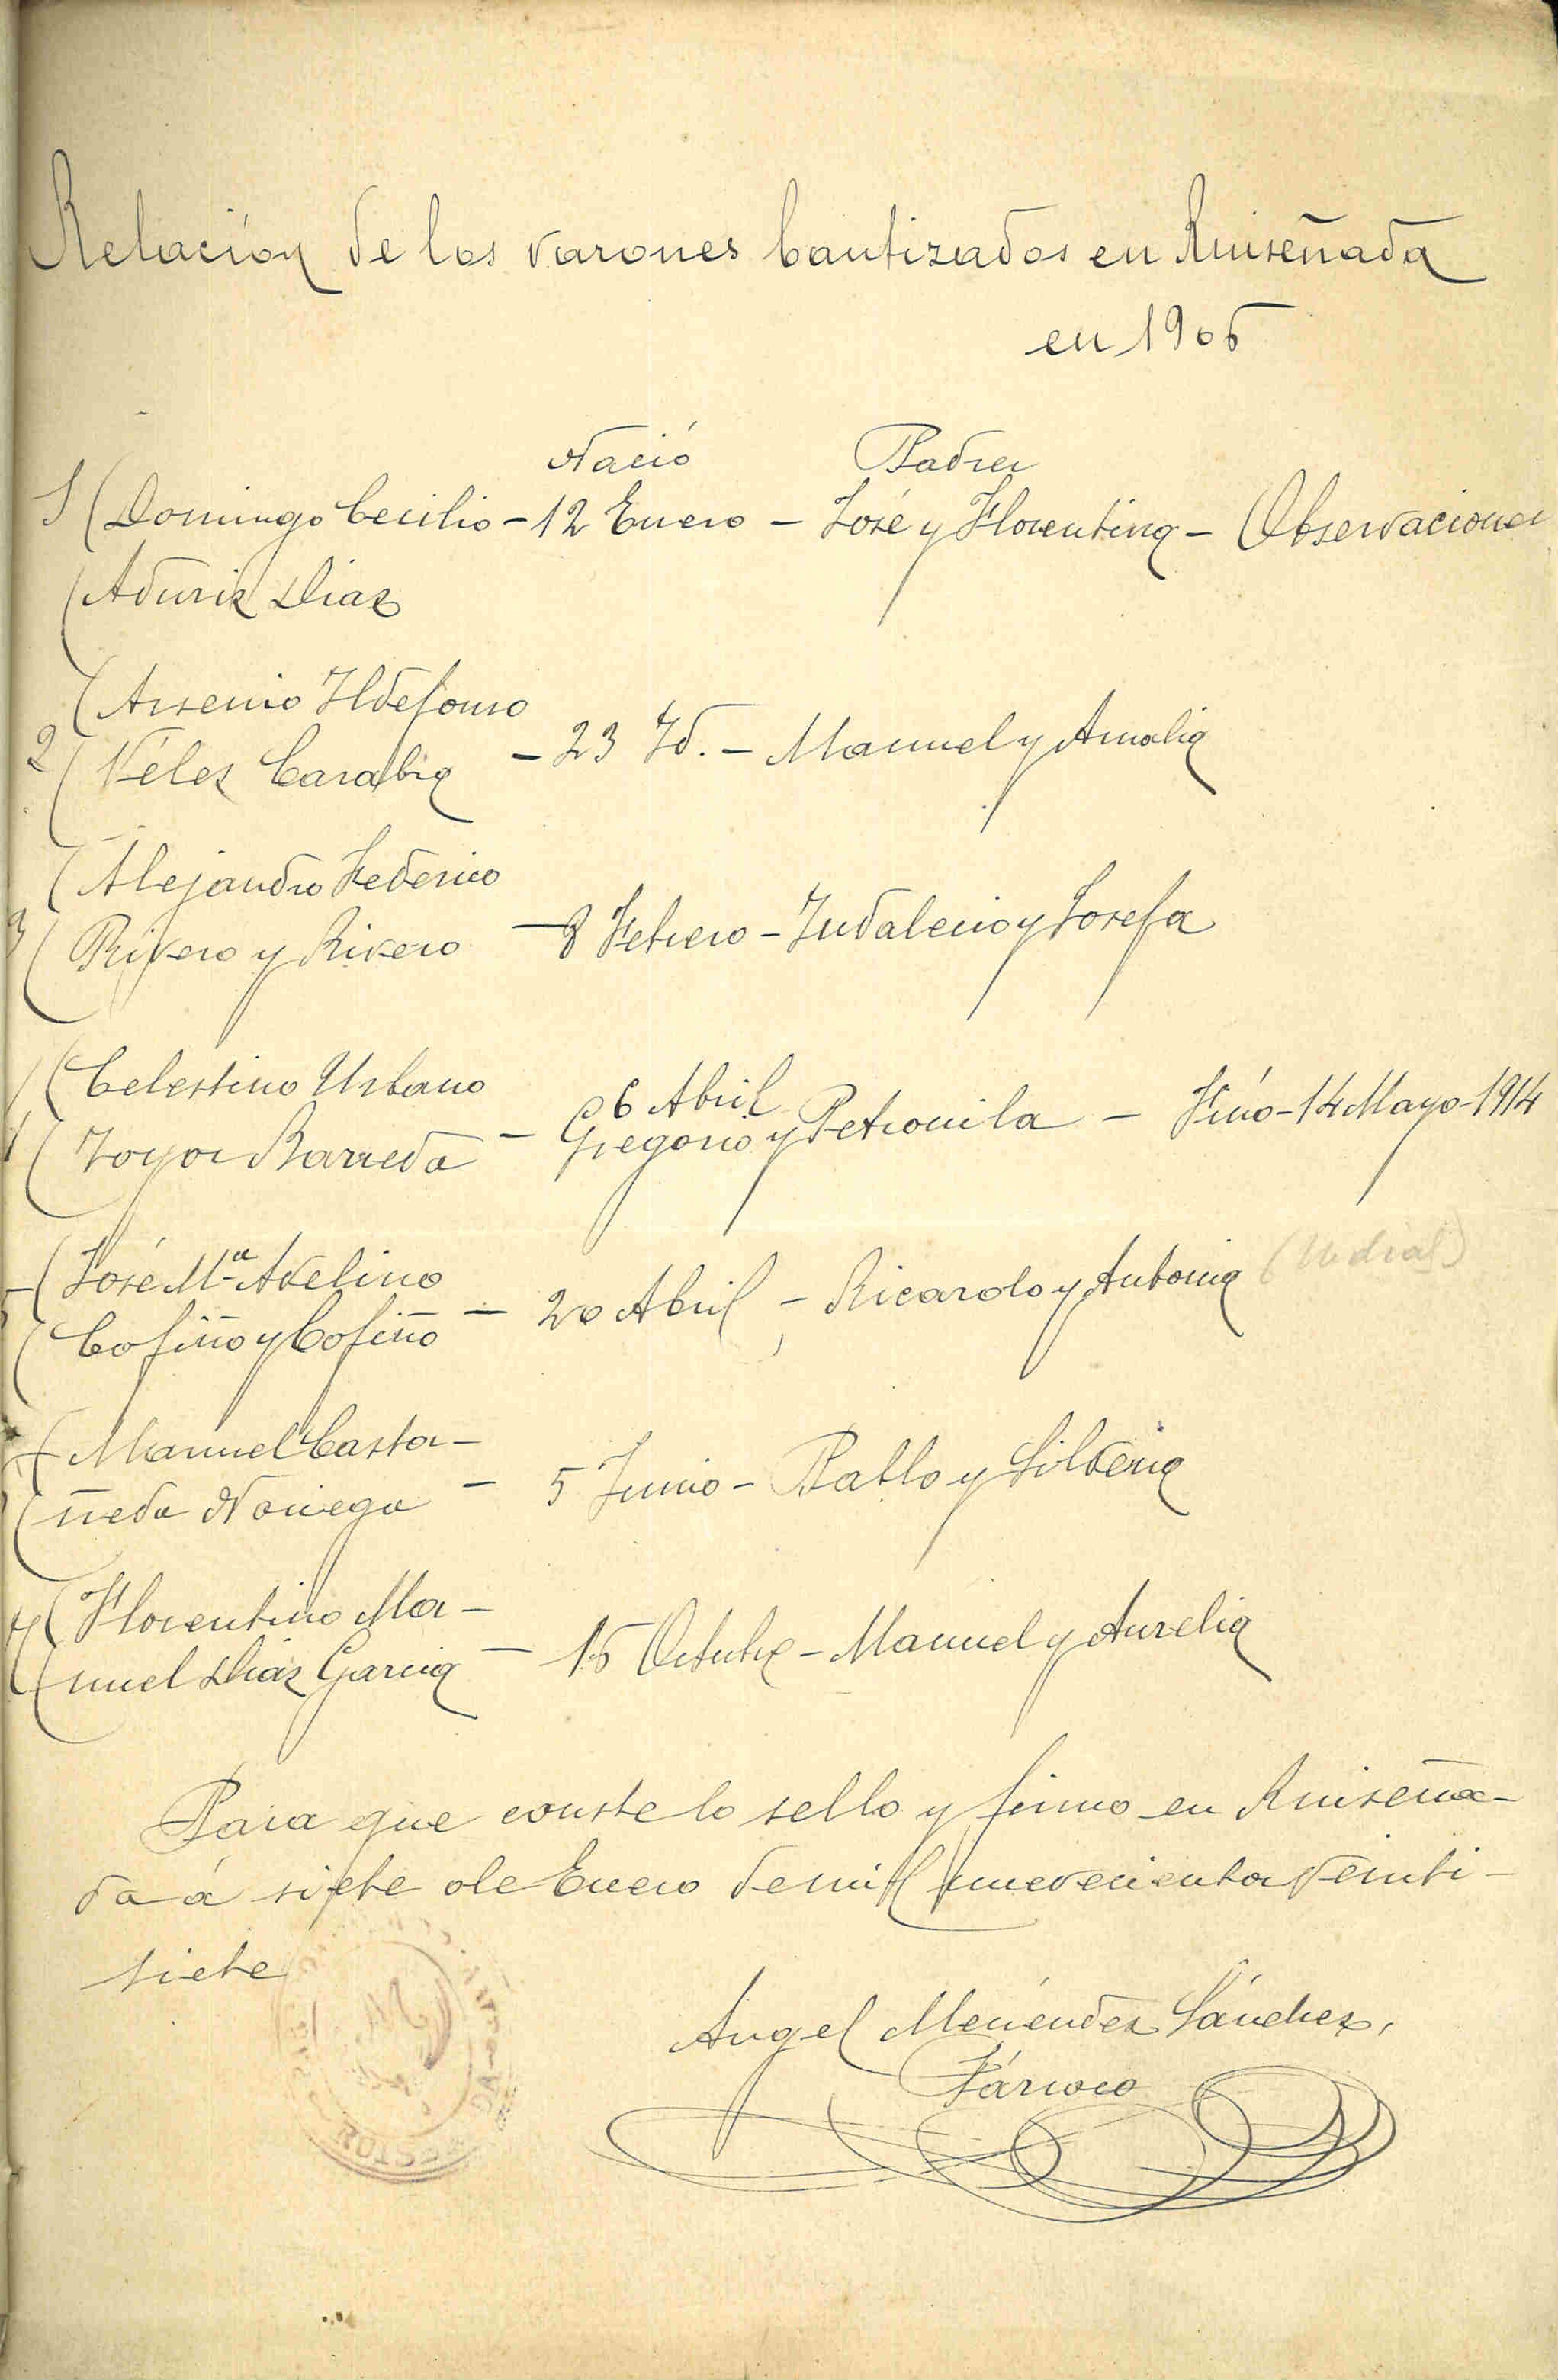 Relación de los varones bautizados en Ruiseñada
en 1906
Nació Padres
1 Domingo Cecilio - 12 Enero - José y Florentina - Observaciones
Aduriz Diaz
Arsenio Ildefonso
2 Vélez Carabia - 23 Id. - Manuel y Amalia
Alejandro Federico
3 Rivero y Rivero - 8 Febrero - Indalecio y Josefa
Celestino Urbano
6 Abril
Toyos Barreda - Gregorio y Petronila - Finó - 14 Mayo - 1914
José Mª Avelino
Cofiño y Cofiño - 20 Abril - Ricardo y Antonia (Udias)
Manuel Casta-
ñeda Noriega - 5 Junio - Pablo y Silveria
Florentino Ma-
nuel Diaz Garcia - 16 Octubre - Manuel y Aurelia
Para que conste lo sello y firmo en Ruiseña-
da á siete de Enero de mil novecientos veinti-
siete
Angel Menéndez Sánchez,
Párroco